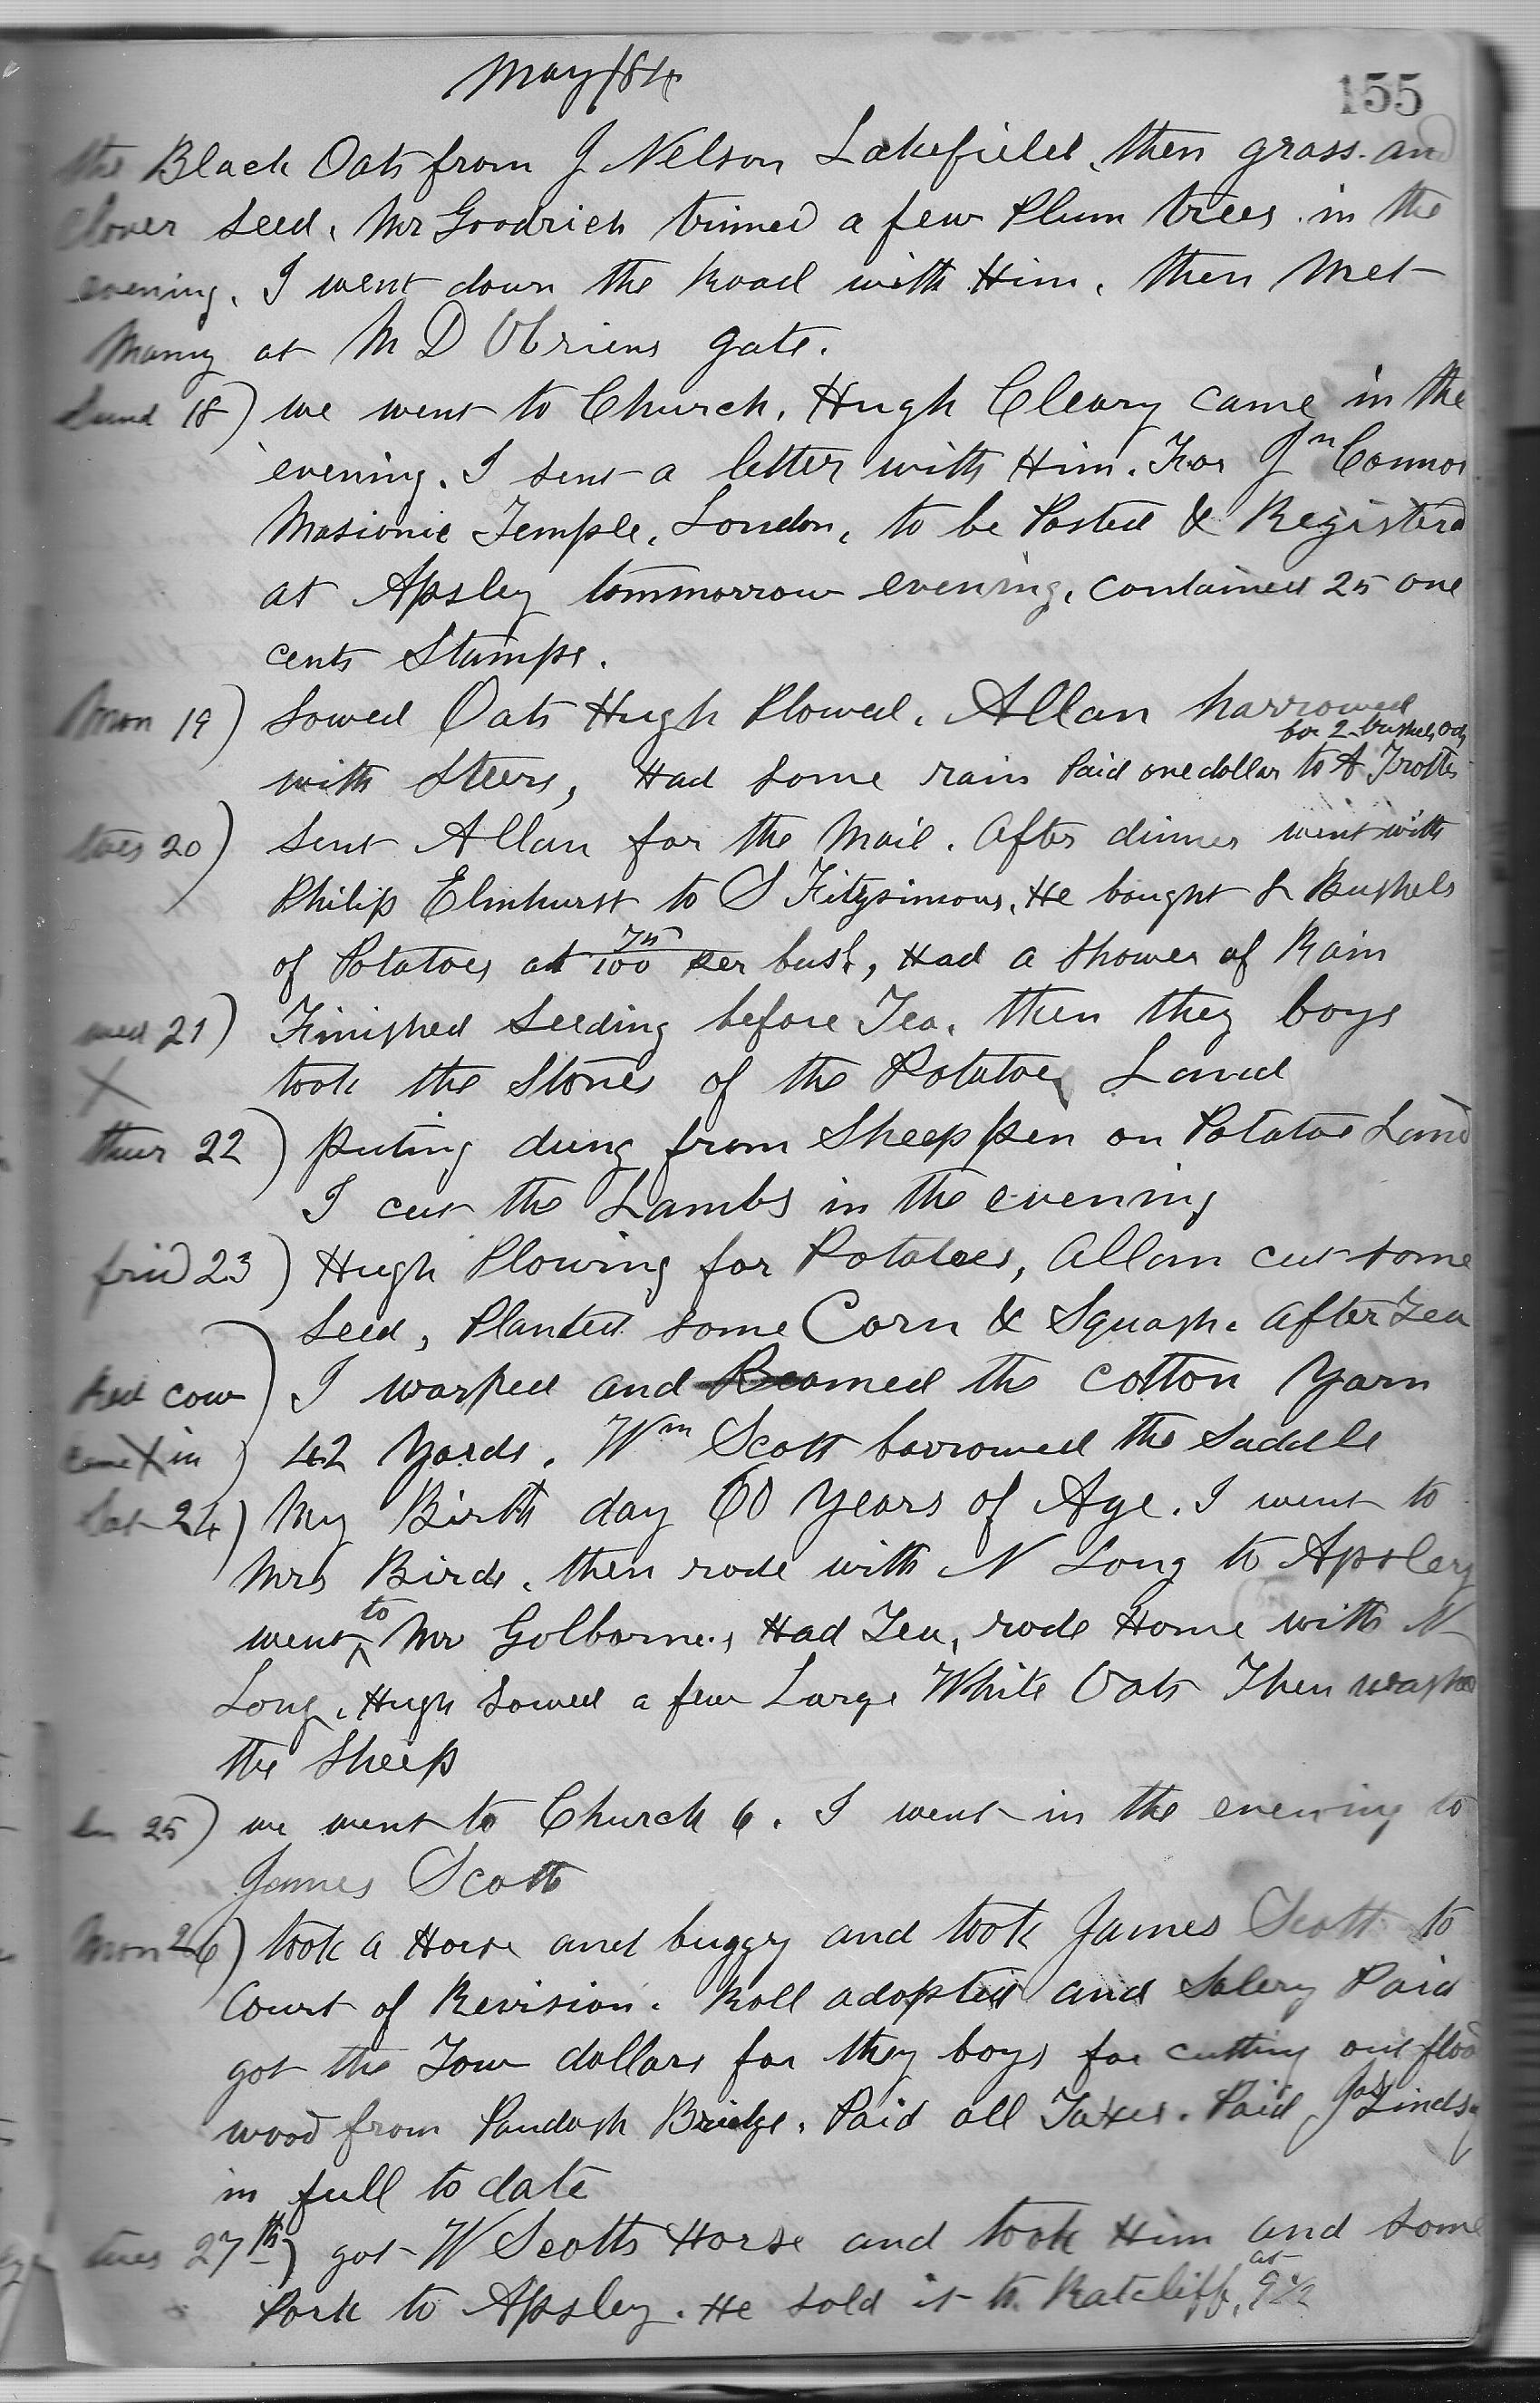 May/84
155
the Black Oats from J Nelson Lakefield, then grass and
Clover seed, Mr Goodrich trimed a few Plum trees in the
evening. I went down the Road with Him, then Met
Many at M D Obriens gate.
Sund 18) we went to Church, Hugh Cleary came in the
evening. I sent a letter with Him. For Jn Connor
Masionic Temple, London, to be Posted & Registerd
at Apsley tommorrow evening, contained 25 one
cents Stamps.
Mon 19) Sowed Oats Hugh Plowed, Allan harrowed
for 2 bushels Oats
with Steers, Had some rain Paid one dollar to A Trotter
tues 20) Sent Allan for the Mail. After dinner went with
Philip Elmhurst to S Fitzsimons, He bought 8 Bushels
of Potatoes at 75/100 per bush, Had a Shower of Rain
wed 21) Finished Seeding before Tea, then they boys
X took the Stones of the Potatoe Land
thur 22) Puting dung from Sheep pen on Potatoe Land
I cut the Lambs in the evening
frid 23) Hugh Plowing for Potatoes, Allan cut some
Seed, Planted some Corn & Squash. After Tea
Red cow) I warped and Beamed the cotton Yarn
came X in) 42 Yards. Wm Scott borrowed the Saddle
Sat 24) My Birth day 60 Years of Age. I went to
Mrs Birds, then rode with N Long to Apsley
went to Mr Golbornes, Had Tea, rode Home with N
Long, Hugh Sowed a few Large White Oats Then washed
the Sheep
Sun 25) we went to Church 6. I went in the evening to
James Scott
Mon 26) took a Horse and buggy and took James Scott to
Court of Revision. Roll adopted and Salery Paid
got the Four dollars for they boys for cutting out flood
wood from Paudash Bridge. Paid all Taxes. Paid Jas Lindsy
in full to date
tues 27th) got W Scotts Horse and took Him and some
Pork to Apsley. He sold it to Ratcliff, at 9½